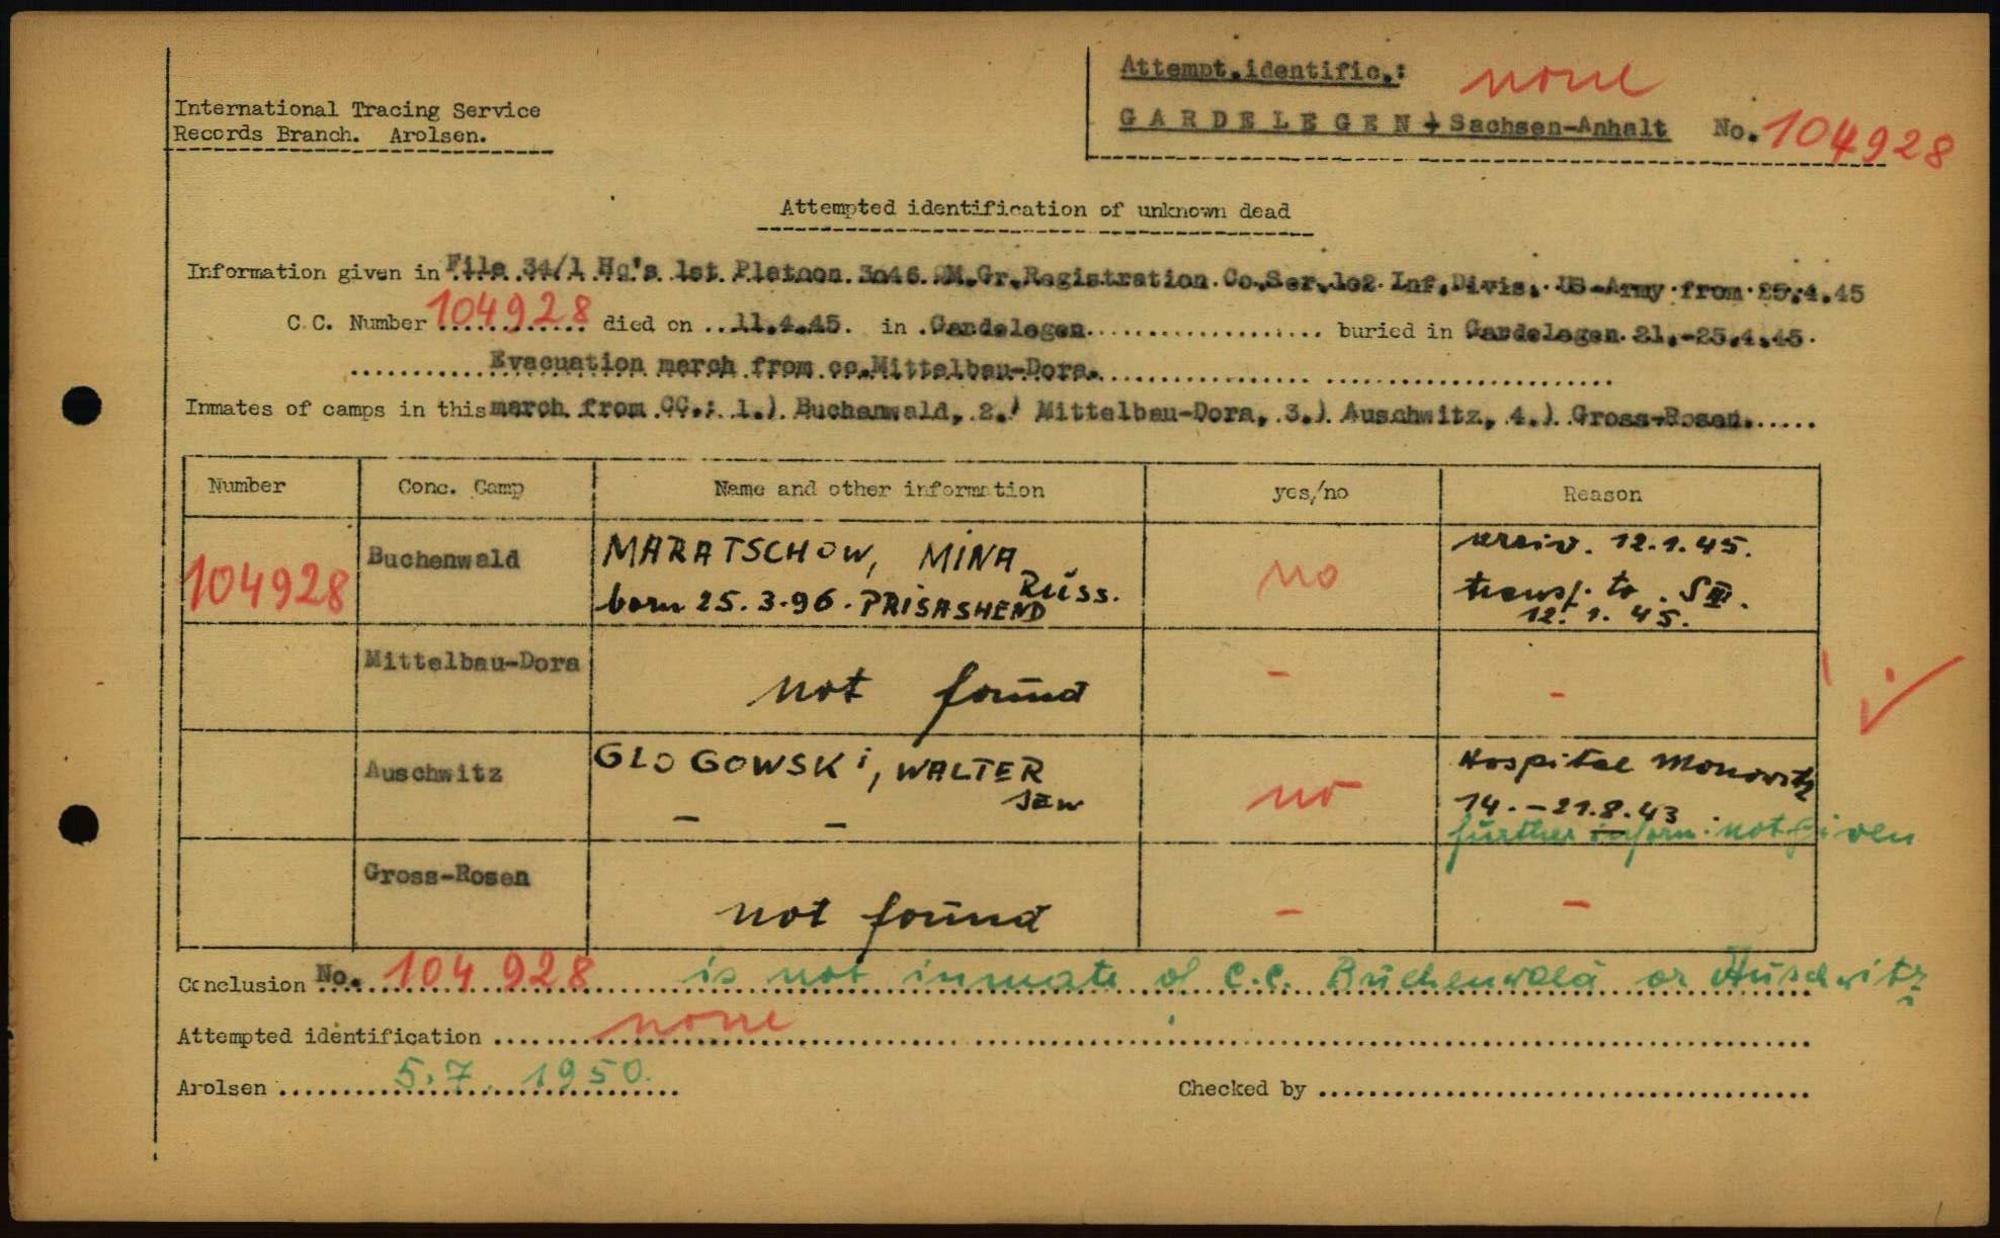 Attempt.identific.: none
International Tracing Service
Records Branch. Arolsen.
GARDELEGEN + Sachsen-Anhalt No. 104928
Attempted identification of unknown dead
Information given in File 34/1 Hq's 1st Platoon 3046 QM.Gr.Registration Co.Ser.102 Inf.Divis. US-Army from 25.4.45
C.C. Number 104928 died on 11.4.45. in Gardelegen buried in Gardelegen 21.-25.4.45.
Evacuation march from cc.Mittelbau-Dora.
Inmates of camps in this march from CC.: 1.) Buchenwald, 2.) Mittelbau-Dora, 3.) Auschwitz, 4.) Gross-Rosen.
Number Conc. Camp Name and other information yes/no Reason
104928 Buchenwald MARATSCHOW, MINA Russ. no arriv. 12.1.45.
born 25.3.96. PRISASHEND transf. to SIII.
12.1.45.
Mittelbau-Dora not found - -
Auschwitz GLOGOWSKi, WALTER no Hospital Monowitz
JEW 14.-21.8.43
- - further inform. not given
Gross-Rosen not found - -
Conclusion No. 104 928 is not inmate of C.C. Buchenwald or Auschwitz
Attempted identification none
Arolsen 5.7.1950. Checked by